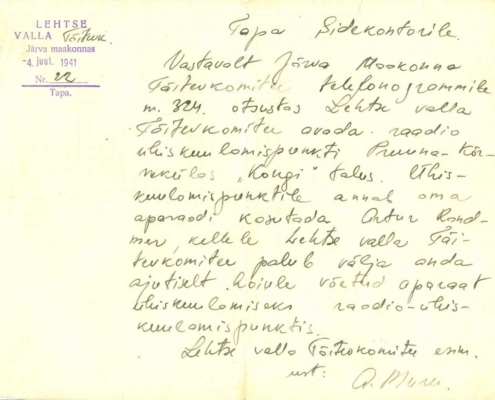 LEHTSE
VALLA Täitevk.
Järva maakonnas
-4. juul. 1941
Nr. 22
Tapa.
Tapa Sidekontorile.
Vastavalt Järva Maakonna
Täitevkomitee telefonogrammile
nr. 324. otsustas Lehtse valla
Täitevkomitee avada raadio
ühiskuulamispunkti Pruuna-Kõr-
vekülas, "Kongi" talus. Ühis-
kuulamispunktile annab oma
aparaadi kasutada Artur
kellele Lehtse valla Täi-
tevkomitee palub välja anda
ajutiselt hoiule võetud aparaat
ühiskuulamiseks raadio-ühis-
kuulamispunktis.
Lehtse valla Täitevkomitee esim.